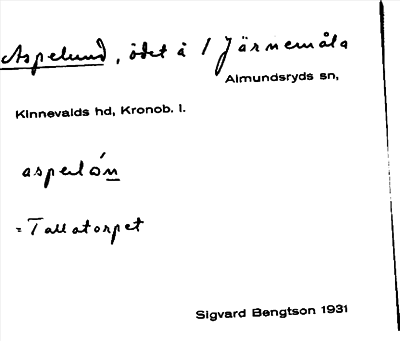 Aspelund, ödet å 1 Järnemåla
Almundsryds sn,
Kinnevalds hd, Kronob. l.
= Tallatorpet
Sigvard Bengtson 1931